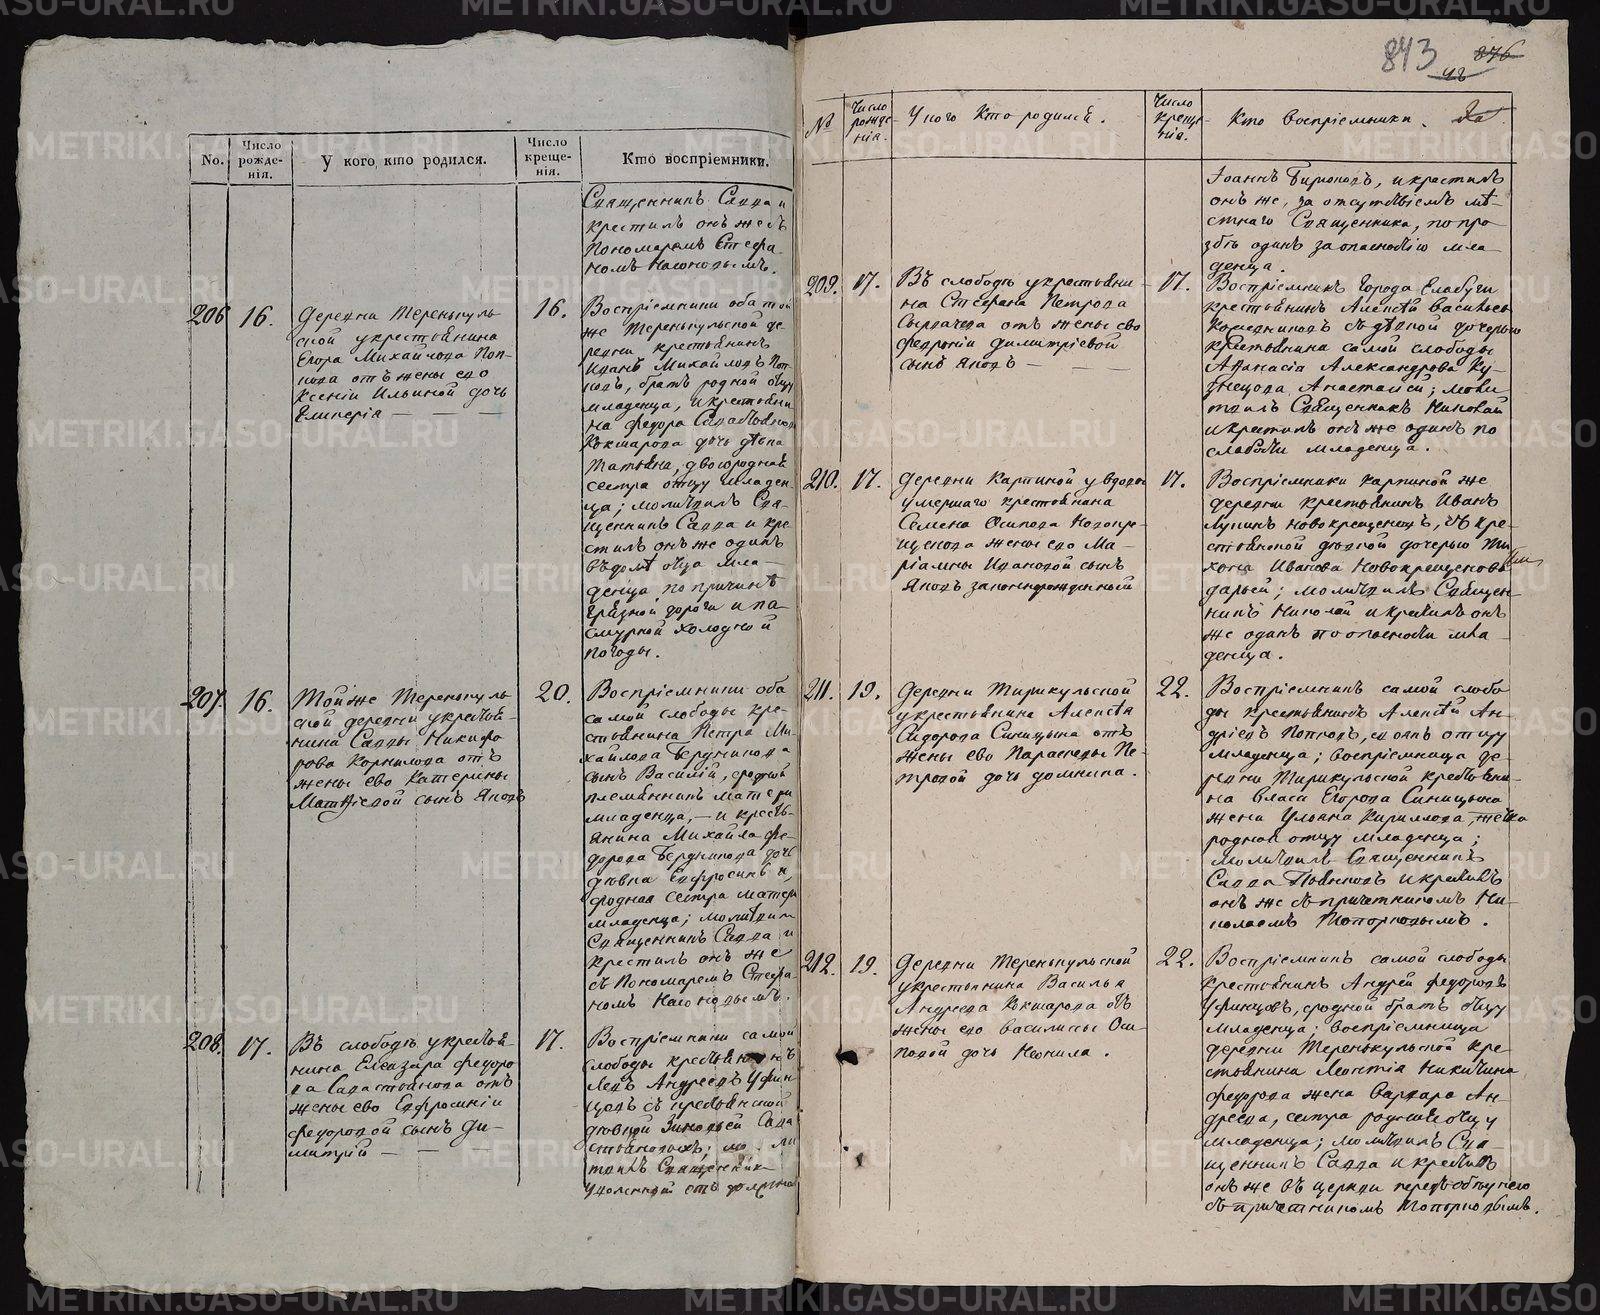 No.
Число рожде-нія.
У кого, кто родился.
Число креще-нія.
Кто воспріемники.
Священникъ Савва и
крестилъ онъ же съ
Пономаремъ Стефа-
номъ
206
16.
Деревни Теренькуль-
ской у крестьянина
Егора Михайлова Поп-
кова отъ жены его
Ксеніи Ильиной дочь
Гликерія
16.
Воспріемники оба той
же Теренькульской де-
ревни крестьянинъ
Иванъ Михайловъ Поп-
ковъ, братъ родной отцу
младенца, и крестьяни-
на Федора Савастьянова
Кокшарова дочь дѣвка
Татьяна, двоюродная
сестра отцу младен-
ца; молитвилъ Свя-
щенникъ Савва и кре-
стилъ онъ же одинъ
въ домѣ отца мла-
денца по причинѣ
грязной дороги и па-
смурной холодной
погоды.
207.
16.
Той же Теренькуль-
ской деревни у крестья-
нина Саввы Никифо-
рова Корнилова отъ
жены его Катерины
Матвѣевой сынъ Яковъ
20.
Воспріемники оба
самой слободы кре-
стьянина Петра Ми-
хайлова Бердникова
сынъ Василій, сродной
племянникъ матери
младенца, – и кресть-
янина Михайла Фе-
дорова Бердникова дочь
дѣвка Евфросинья,
сродная сестра матери
младенца; молитвилъ
Священникъ Савва и
крестилъ онъ же
съ Пономаремъ Стефа-
номъ
208.
17.
Въ слободѣ у крестья-
нина Елеазара Федоро-
ва Савастьянова отъ
жены его Евфросиніи
Федоровой сынъ Ди-
митрій
17.
Воспріемники самой
слободы крестьянинъ
Левъ Андреевъ Уфин-
цевъ съ крестьянской
дѣвкой Зиновьей Сава-
стьяновой; моли-
твилъ Священникъ
уволенный отъ должно
843
876
No
Число рожде-нія.
У кого кто родился.
Число креще-нія.
Кто воспріемники.
Іоаннъ Бирюковъ, и крестилъ
онъ же, за отсутствіемъ мѣ-
стнаго Священника, по про-
збѣ одинъ за опасностію мла-
денца.
209.
17.
Въ слободѣ у крестьяни-
на Стефана Петрова
Сыр
отъ жены его
Февроніи Димитріевой
сынъ Яковъ
17.
Воспріемникъ города Елабуги
крестьянинъ Алексѣй Васильевъ
съ дѣвкой дочерью
крестьянина самой слободы
Афанасія Александрова Ку-
знецова Анастасіей; моли-
твилъ Священникъ Николай
и крестилъ онъ же одинъ по
слабости младенца.
210.
17.
Деревни Карпиной у вдовы
умершаго крестьянина
Семена Осипова Новокре-
щенова жены его Ма-
ріамны Ивановой сынъ
Яковъ законнорожденный
17.
Воспріемники Карпиной же
деревни крестьянинъ Иванъ
Лупинъ Новокрещеновъ, съ кре-
стьянской дѣвкой дочерью Ти-
хона Иванова Новокрещенова
Дарьей; молитвилъ Священ-
никъ Николай и крестилъ онъ
же одинъ по опасности мла-
денца.
211.
19.
Деревни Тирикульской
у крестьянина Алексѣя
Сидорова Синицына отъ
жены его Параскевы Пе-
тровой дочь Домника.
22.
Воспріемникъ самой слобо-
ды крестьянинъ Алексѣй Ан-
дреевъ Попковъ, сватъ отцу
младенца; воспріемница де-
ревни Тирикульской крестьяни-
на Власа Егорова Синицына
жена Ульяна Кириллова, тетка
родная отцу младенца;
молитвилъ Священникъ
Савва и крестилъ
онъ же съ причетникомъ Ни-
колаемъ Топорковымъ.
212.
19.
Деревни Теренькульской
у крестьянина Василья
Андреева Кокшарова отъ
жены его Василисы Оси-
повой дочь Неонила.
22.
Воспріемникъ самой слободы
крестьянинъ Андрей Федоровъ
Уфинцовъ, сродной братъ отцу
младенца; воспріемница
деревни Теренькульской кре-
стьянина Леонтія Никитина
Федорова жена Варвара Ан-
дреева, сестра родная отцу
младенца; молитвилъ Свя-
щенникъ Савва и крестилъ
онъ же въ церкви передъ обѣднею
съ причетникомъ Топорковымъ.